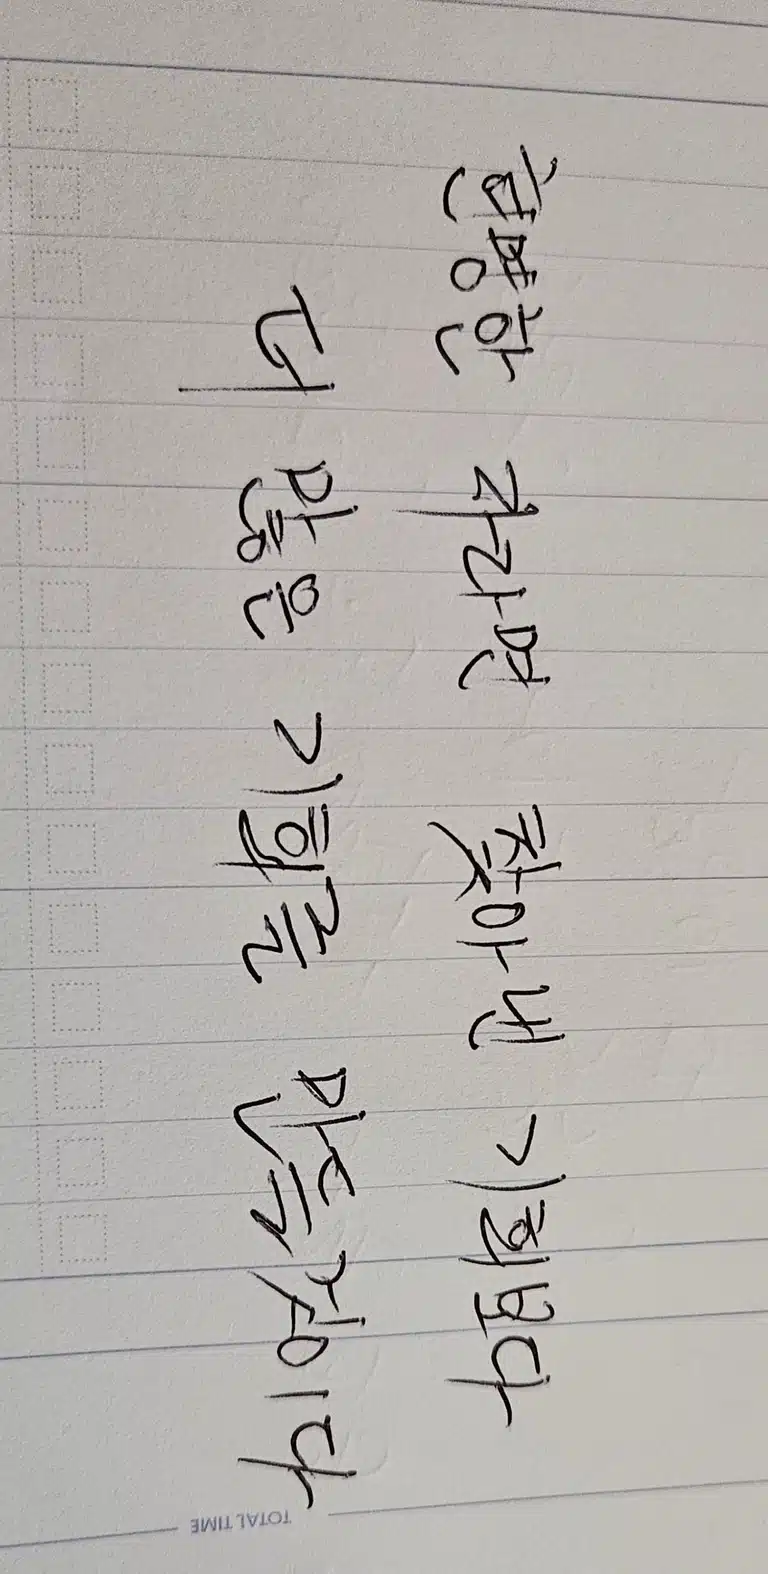 현명한 자라면 찾아낸 기회보다
더 많은 기회를 만들 것이다
TOTAL TIME